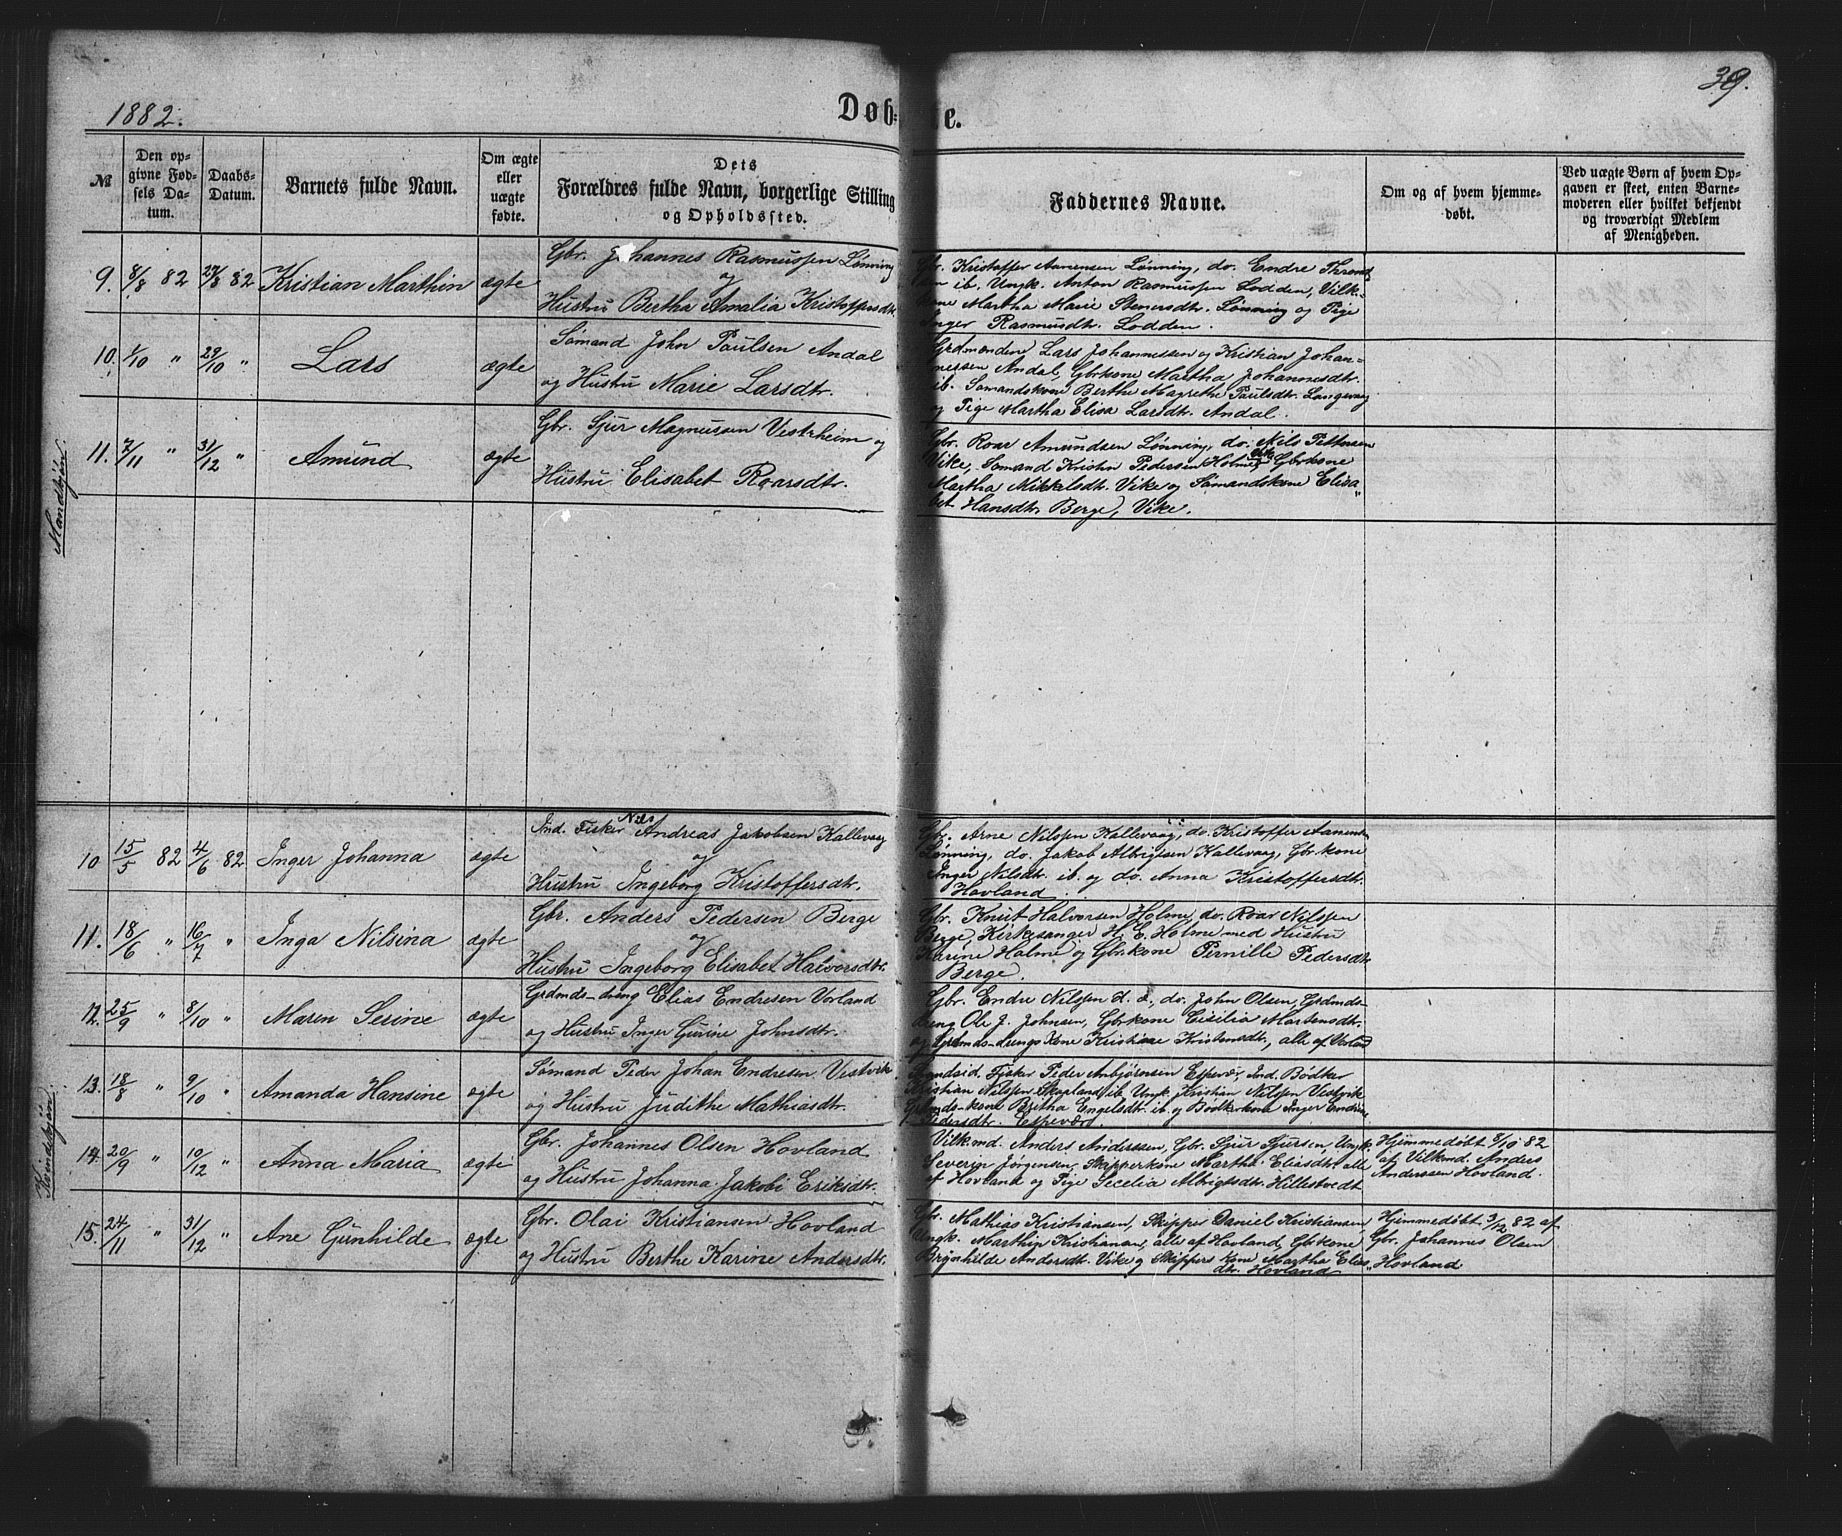 1882.
Døb-
te.
39.
№
Den op-
givne Fød-
sels Da-
tum.
Daabs-
Datum.
Barnets fulde Navn.
Om ægte
eller
uægte
fødte.
Dets
Forældres fulde Navn, borgerlige Stilling
og Opholdssted.
Faddernes Navne.
Om og af hvem hjemme-
døbt.
Ved uægte Børn af hvem Op-
gaven er skeet, enten Barne-
moderen eller hvilket bekjendt
og troværdigt Medlem
af Menigheden.
Mandkjøn:
9. 8/8 82 29/8 82 Kristian Marthin ægte
Gbr. Johannes Rasmussen Lønning
og
Hustru Bertha Amalia Kristoffersdtr.
Gbr. Kristoffer Aamensen Lønning, do. Endre Thromd
sen ib, Ungk. Anton Rasmussen Lodden, Vilk-
kone Martha Marie Stenersdtr. Lønning og Pige
Inger Rasmusdtr. Lodden.
10. 1/10 " 29/10 " Lars ægte
Sømand John Paulsen Andal
og Hustru Marie Larsdtr.
Grdmændene Lars Johannessen og Kristian Johan-
nessen Andal, Gbrkone Martha Johannesdtr.
ib. Sømandskone Berthe Magrethe Paulsdtr. Langevaag
og Pige Martha Elisa Larsdtr. Andal.
11. 7/11 " 31/12 " Amund ægte
Gbr. Sjur Magnussen Vestrheim og
Hustru Elisabet Roarsdtr.
Gbr. Roar Amundsen Lønning, do. Nils Pettersen
Vike, Sømand Kristn Pedersen Holme, Gbrkone
Martha Mikkelsdtr. Vike og Sømandskone Elisa"
bet Hansdtr. Berge, Vike.
Kvindekjøn:
10 15/5 82 4/6 82 Inger Johanna ægte
Ind. Fisker Nils Andreas Jakobsen Kallevaag
og
Hustru Ingeborg Kristoffersdtr.
Gbr. Arne Nilssen Kallevaag, do. Kristoffer Aamens.
Lønning, do. Jakob Albrigtsen Kallevaag, Gbrkone
Inger Nilsdtr. ib. og do. Anna Kristoffersdtr.
Hovland.
11. 18/6 " 16/7 " Inga Nilsina ægte
Gbr. Anders Pedersen Berge
og
Hustru Ingeborg Elisabet Halvorsdtr.
Gbr. Knut Halvorsen Holme, do. Roar Nilssen
Berge, Kirkesanger H. E. Holme med Hustru
Karine Holme og Gbrkone Pernille Pedersdtr.
Berge.
12. 25/9 " 8/10 " Maren Serine ægte
Grdmds-dreng Elias Endresen Vorland
og Hustru Inger Gurine Johnsdtr.
Gbr. Endre Nilssen d. æ., do. John Olsen, Grdmds-
dreng Ole J. Johnsen, Gbrkone Cisilia Martensdtr.
og Grdmds-drengs Kone Kristine Kristensdtr., alle af Vorland
13. 18/8 " 9/10 " Amanda Hansine ægte
Sømand Peder Johan Endresen Vestvik
og Hustru Judithe Mathiasdtr.
Strandsid. Fisker Peder Anbjørnsen Espevær, Ind. Bødker
Kristian Nilssen Skapland ib. Ungk. Kristian Nilssen Vestvik
Grdmds-kone Britha Engelsdtr. ib. og Bødkerkone Inger Endrine
Pedersdtr. Espevær.
14. 20/9 " 10/12 " Anna Maria ægte
Gbr. Johannes Olsen Hovland
og Hustru Johanna Jakobi Eriksdtr.
Vilkmd. Anders Anderssen, Gbr. Sjur Sjursen, Ungk.
Severin Jørgensen, Skipperkone Martha Eliasdtr. alle
af Hovland og Pige Secelia Albrigtsdtr. Hillestvedt
Hjemmedøbt 8/10 82
af Vilkmd. Anders
Anderssen Hovland.
15. 24/11 " 31/12 " Ane Gunhilde ægte
Gbr. Olai Kristiansen Hovland
og Hustru Berthe Karine Andersdtr.
Gbr. Mathias Kristiansen, Skipper Daniel Kristiansen
Ungk. Marthin Kristiansen, alle af Hovland, Gbrkone
Brynhilde Andersdtr. Vike og Skippers Kone Martha Elias"
dtr. Hovland
Hjemmedøbt 3/12 82 af
Gbr. Johannes Olsen
Hovland